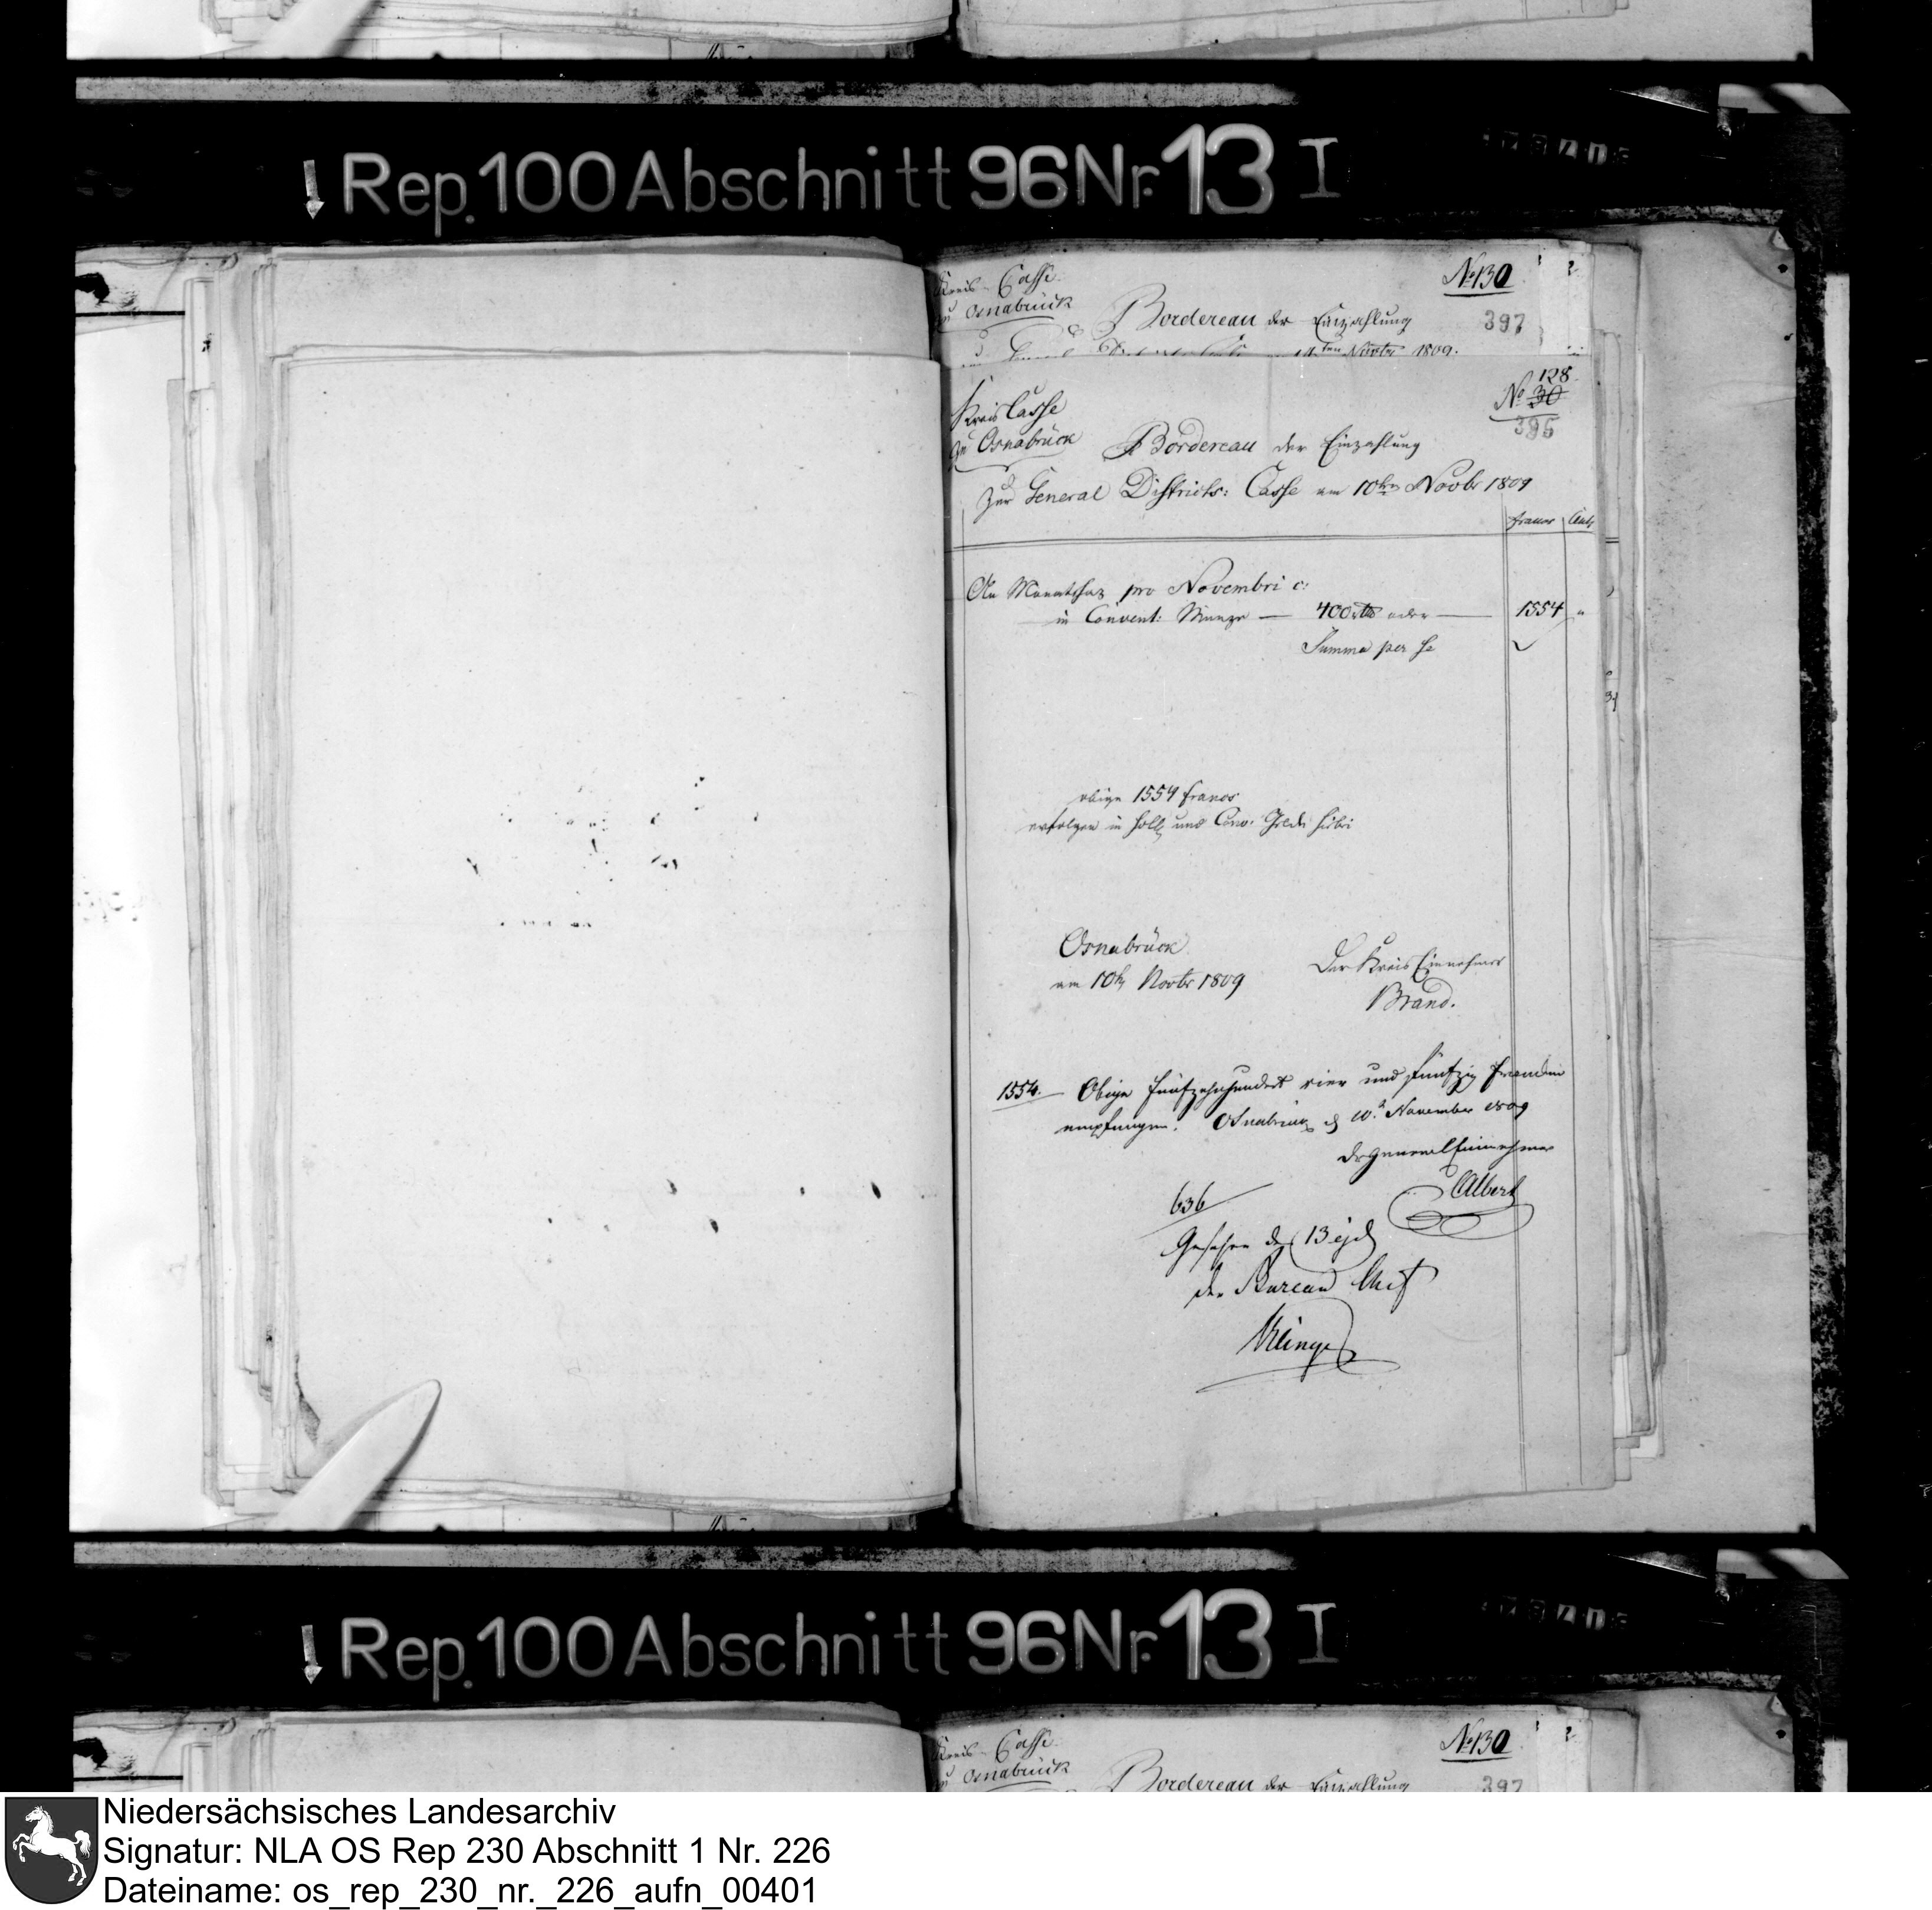 Rep. 100 Abschnitt 96 Nr. 13 I
Kreis-Casse
zu Osnabrück
No 130
Bordereau der Einzahlung
397
ten Novbr 1809.
Kreis Casse
zu Osnabrück
128
No 30
395
Bordereau der Einzahlung
zur General Districts: Casse am 10ten Novbr 1809
francs Cent.
An Monatsfaz pro Novembri c:
in Convent: Münze — 400 rtlr oder — 1554 "
Summa per se
obige 1554 francs
erfolgen in holl. und Conv. Gelde hiebei
Osnabrück
am 10ten Novbr 1809
Der Kreis Einnehmer
Brand.
1554. — Obige fünfzehnhundert vier und fünfzig Franken
empfangen. Osnabrück d 10. November 1809
Der General Einnehmer
Albert
636
Gesehen den 13 ejd
der Bureau Chef
Klinge
Rep. 100 Abschnitt 96 Nr. 13 I
Kreis-Casse
zu Osnabrück
No 130
Bordereau der Einzahlung
397
Niedersächsisches Landesarchiv
Signatur: NLA OS Rep 230 Abschnitt 1 Nr. 226
Dateiname: os_rep_230_nr._226_aufn_00401